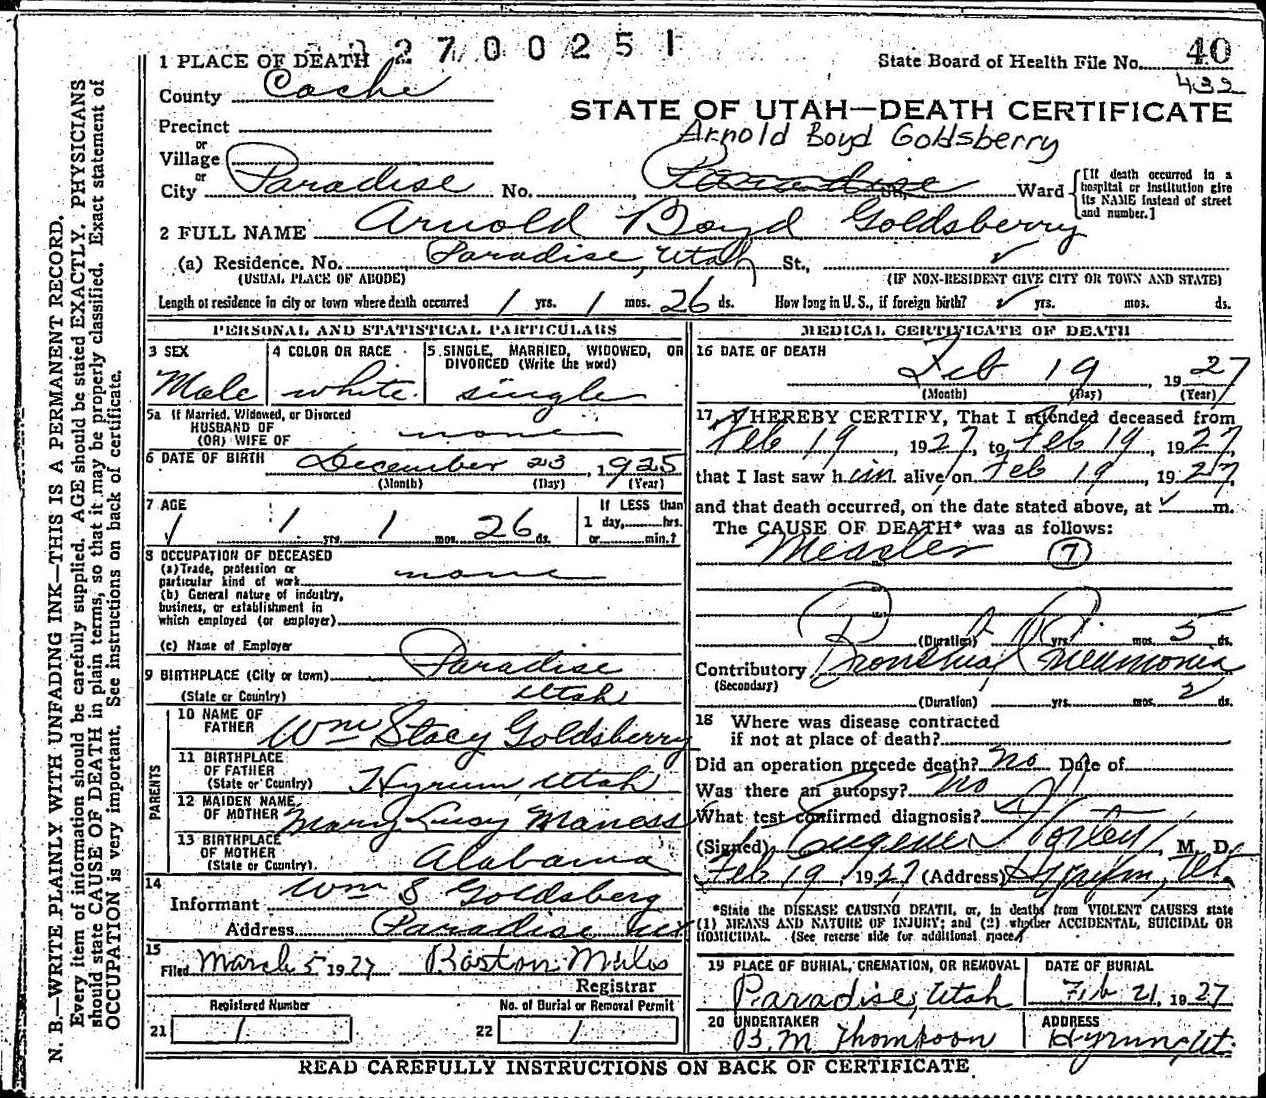 2700251
1 PLACE OF DEATH
State Board of Health File No. 40
432
County Cache
STATE OF UTAH—DEATH CERTIFICATE
Precinct
Arnold Boyd Goldsberry
or
Village
or
City Paradise No. Paradise St., Ward
[If death occurred in a hospital or institution give its NAME instead of street and number.]
2 FULL NAME Arnold Boyd Goldsberry
(a) Residence, No. Paradise, Utah St.,
(USUAL PLACE OF ABODE) (IF NON-RESIDENT GIVE CITY OR TOWN AND STATE)
Length of residence in city or town where death occurred 1 yrs. 1 mos. 26 ds. How long in U. S., if foreign birth? yrs. mos. ds.
PERSONAL AND STATISTICAL PARTICULARS
3 SEX
Male
4 COLOR OR RACE
white
5 SINGLE, MARRIED, WIDOWED, OR
DIVORCED (Write the word)
single
5a If Married, Widowed, or Divorced
HUSBAND OF
(OR) WIFE OF none
6 DATE OF BIRTH December 23, 1925
(Month) (Day) (Year)
7 AGE
1 yrs. 1 mos. 26 ds.
If LESS than
1 day, hrs.
or min.?
8 OCCUPATION OF DECEASED
(a) Trade, profession or
particular kind of work none
(b) General nature of industry,
business, or establishment in
which employed (or employer)
(c) Name of Employer
9 BIRTHPLACE (City or town) Paradise
(State or Country) Utah
PARENTS
10 NAME OF
FATHER Wm Stacy Goldsberry
11 BIRTHPLACE
OF FATHER
(State or Country) Hyrum, Utah
12 MAIDEN NAME
OF MOTHER Mary Maness
13 BIRTHPLACE
OF MOTHER
(State or Country) Alabama
14
Informant Wm S Goldsberg
Address Paradise
15
Filed March 5 1927
Registrar
Registered Number
21 1
No. of Burial or Removal Permit
22 1
MEDICAL CERTIFICATE OF DEATH
16 DATE OF DEATH
Feb 19, 1927
(Month) (Day) (Year)
17 I HEREBY CERTIFY, That I attended deceased from
Feb 19, 1927, to Feb 19, 1927,
that I last saw him alive on Feb 19, 1927,
and that death occurred, on the date stated above, at m.
The CAUSE OF DEATH* was as follows:
Measles 7
(Duration) yrs. mos. 5 ds.
Contributory Bronchial Pneumonia
(Secondary)
(Duration) yrs. mos. 2 ds.
18 Where was disease contracted
if not at place of death?
Did an operation precede death? no Date of
Was there an autopsy? no
What test confirmed diagnosis?
(Signed) Eugene Worley, M. D.
Feb 19, 1927 (Address) Hyrum, Ut.
*State the DISEASE CAUSING DEATH, or, in deaths from VIOLENT CAUSES state
(1) MEANS AND NATURE OF INJURY; and (2) whether ACCIDENTAL, SUICIDAL OR
HOMICIDAL. (See reverse side for additional space.)
19 PLACE OF BURIAL, CREMATION, OR REMOVAL
Paradise, Utah
DATE OF BURIAL
Feb 21, 1927
20 UNDERTAKER
B. M. Thompson
ADDRESS
Hyrum, Ut.
READ CAREFULLY INSTRUCTIONS ON BACK OF CERTIFICATE
N. B.—WRITE PLAINLY WITH UNFADING INK—THIS IS A PERMANENT RECORD.
Every item of information should be carefully supplied. AGE should be stated EXACTLY. PHYSICIANS
should state CAUSE OF DEATH in plain terms, so that it may be properly classified. Exact statement of
OCCUPATION is very important. See instructions on back of certificate.